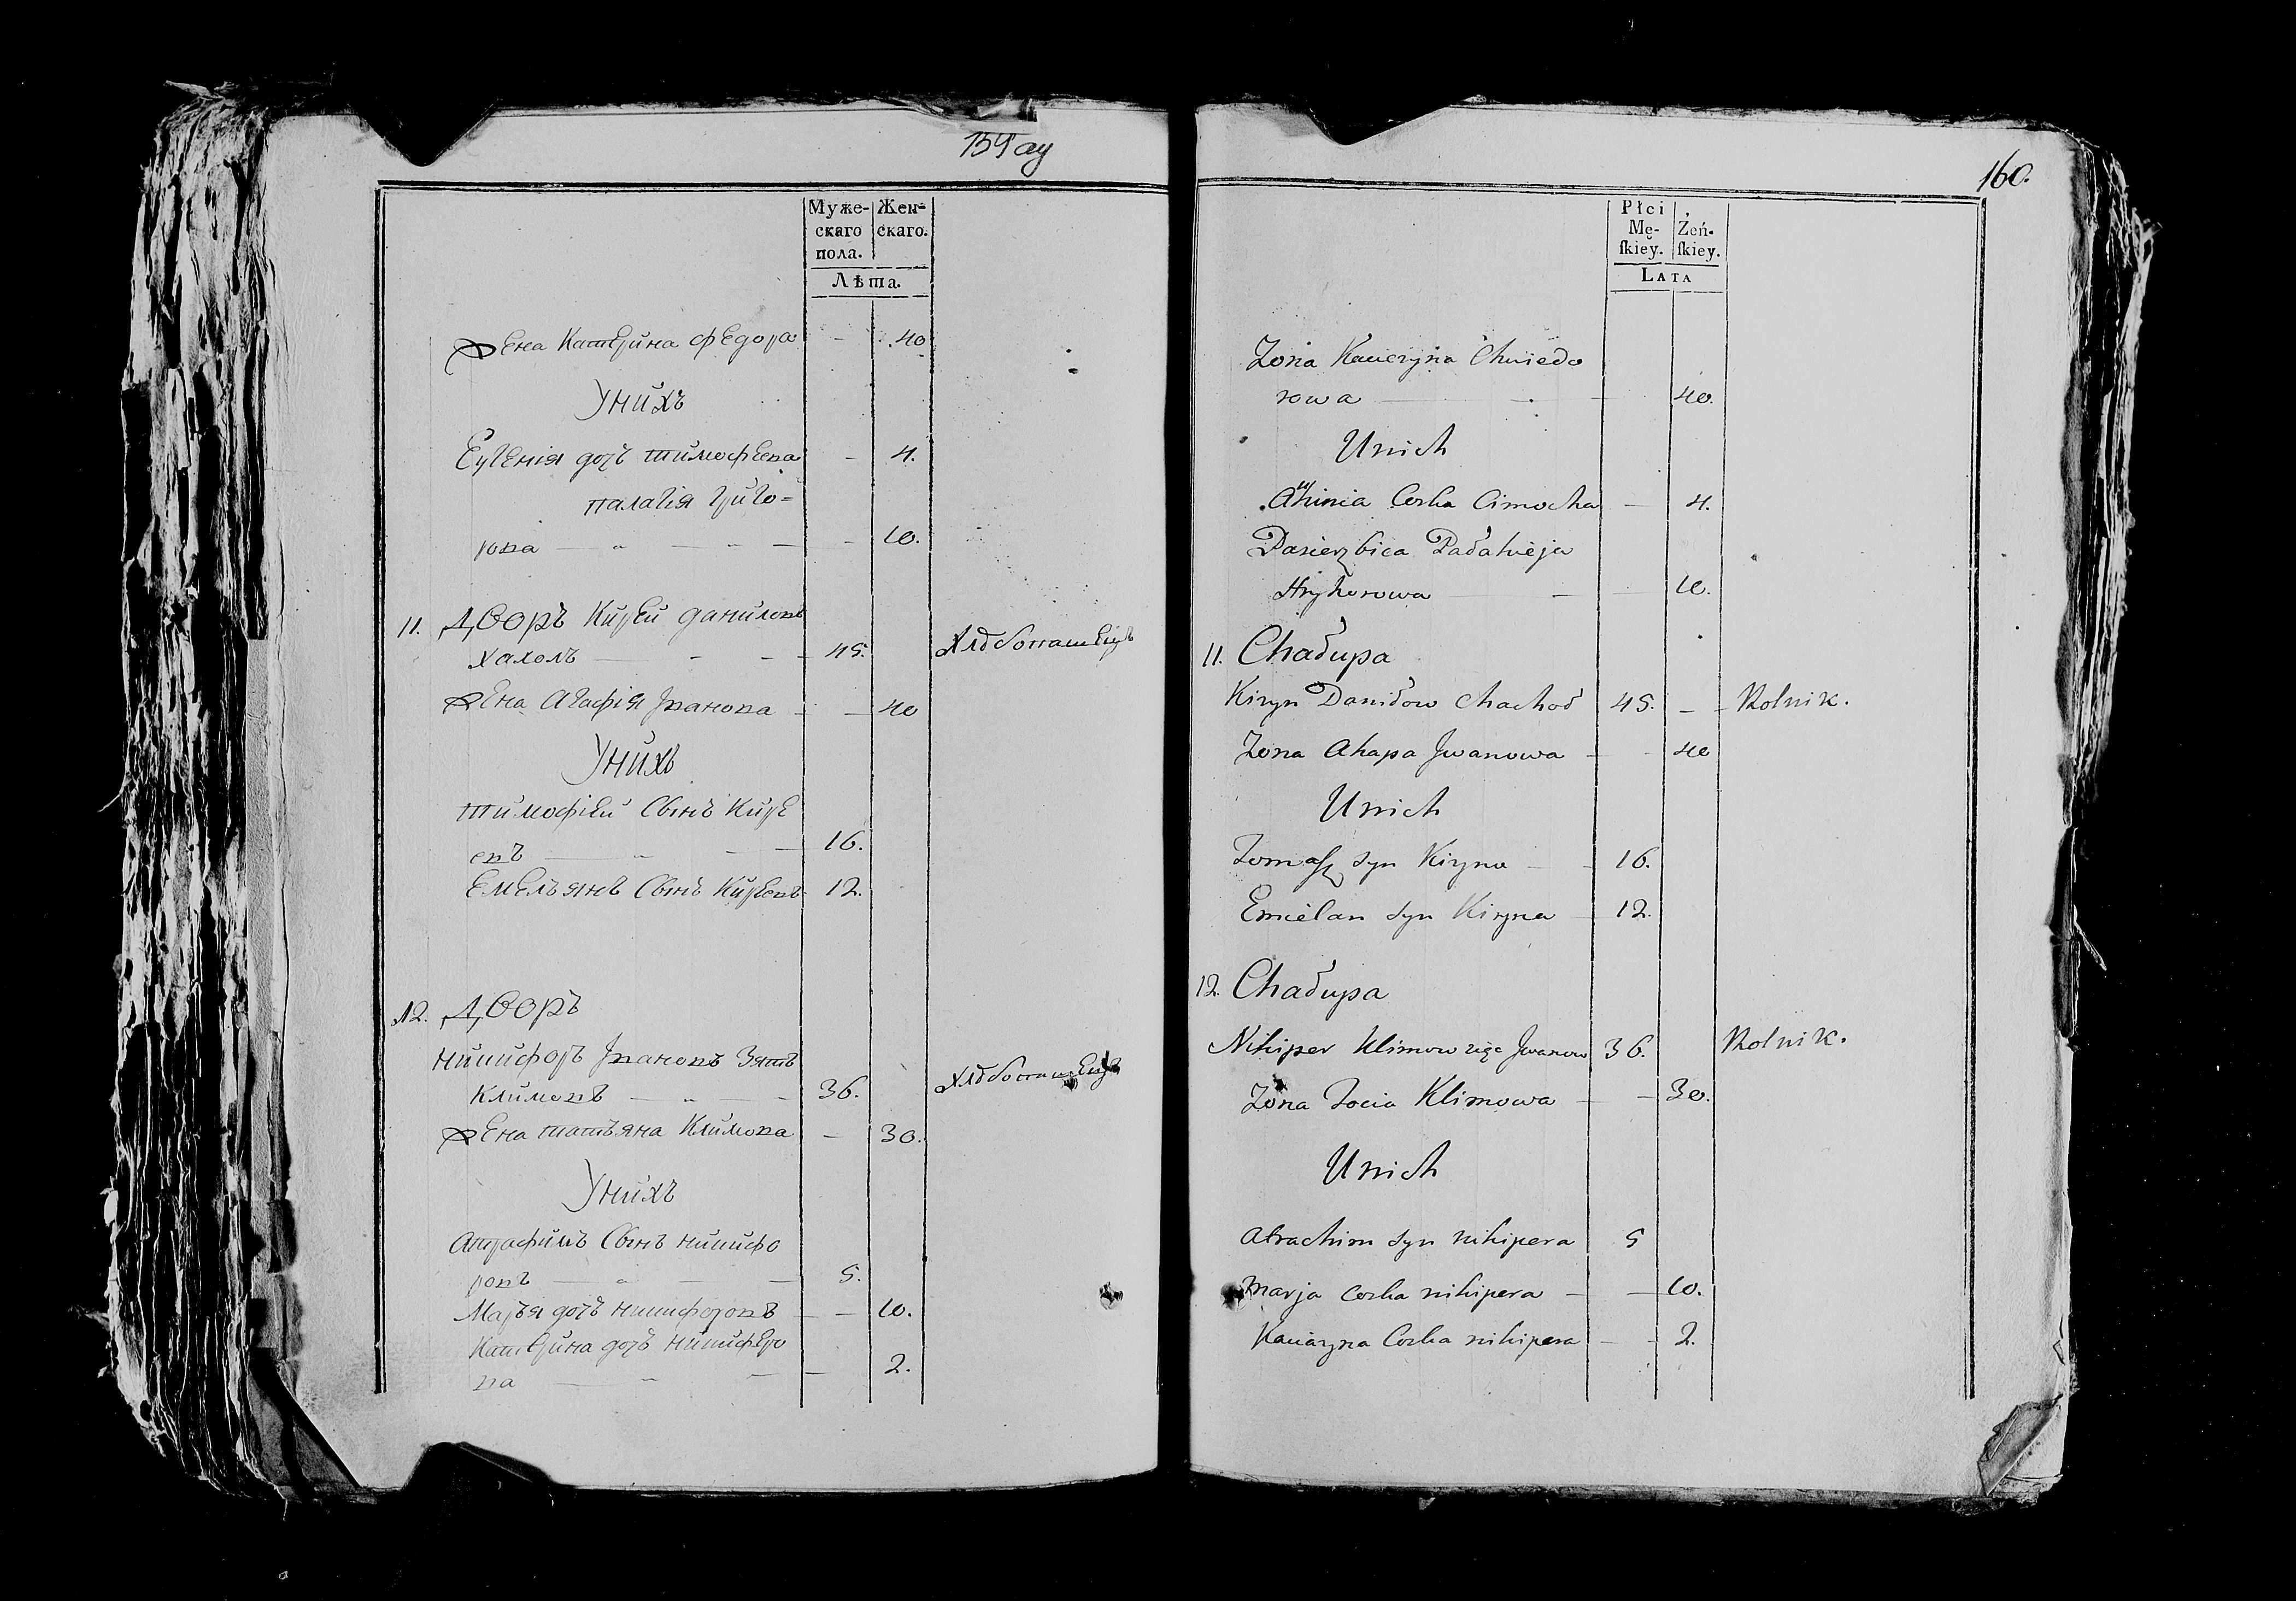 159 ау
Муже-
скаго
пола.
Жен-
скаго.
Лѣта.
Жена Катерина Федора - 40
Унихъ
Еугения дочъ тимофеева - 4.
палагия григо=
рова - 10.
11. Дворъ Кирей данилов
Хахолъ - 45. Хлебопашецъ
Жена Агафия Иванова - 40
Унихъ
тимофией Сынъ Кире
евъ - 16.
Емельянъ Сынъ Киреевъ 12.
12. Дворъ
никифоръ Ивановъ Зять
Климовъ - 36. Хлебопашецъ
Жена татьяна Климова - 30.
Унихъ
Сынъ никифо
ровъ - 5.
Марья дочъ никифоровъ - 10.
Катерина дочъ никифоро
ва - 2.
160.
Płci
Mę-
skiey.
Żeń-
skiey.
LATA
Zona Kacieryna Chwiedo
rowa - 40.
Unich
Auhinia Corka Cimocha - 4.
Pasierzbica Pałahieja
Hryhorowa - 10.
11. Chałupa
Kiryn Daniłow Chachoł 45. - Rolnik.
Zona Ahapa Jwanowa - 40
Unich
Tomasz syn Kiryna - 16.
Emielan syn Kiryna - 12.
12. Chałupa
Nikiper Klimow zięc Jwanow 36. Rolnik.
Zona Tocia Klimowa - 30.
Unich
Atrachim syn nikipera 5
Marja Corka nikipera - 10.
Kaciaryna Corka nikipera - 2.